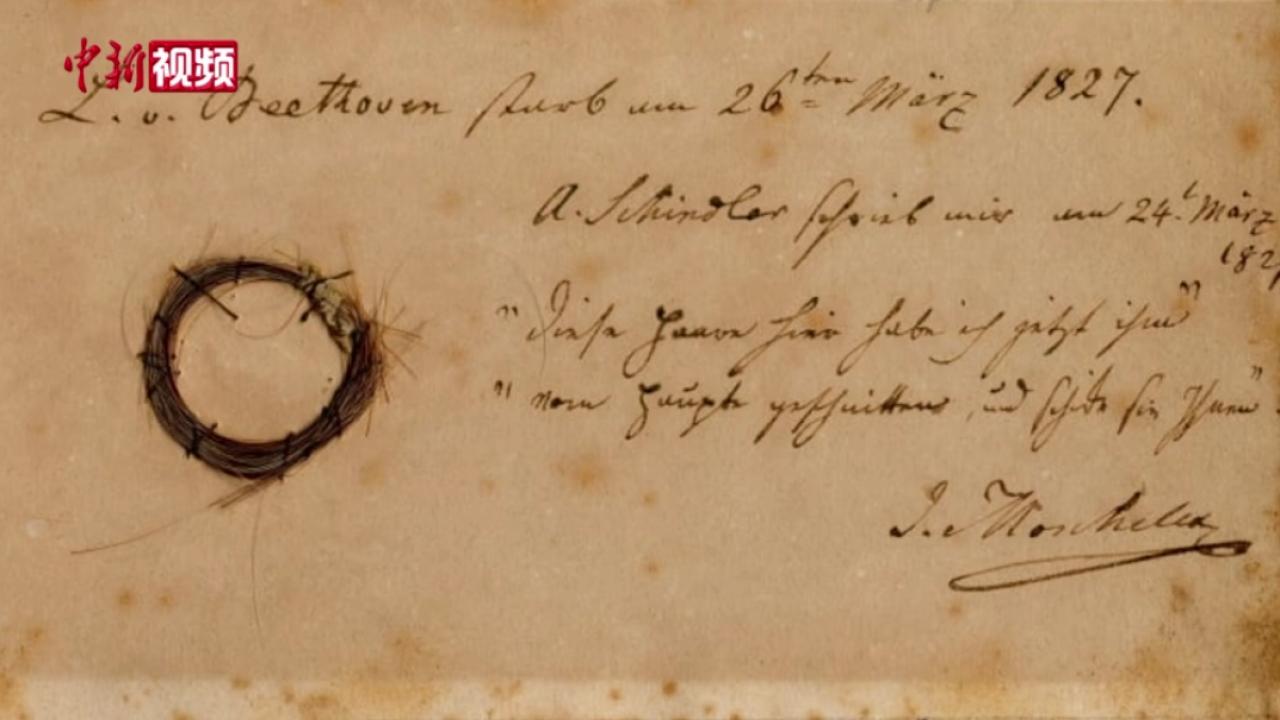 中新视频
L. v. Beethoven starb am 26ten März 1827.
A. Schindler schrieb mir am 24t März
182
"diese Haare hier habe ich jetzt ihm"
"vom Haupte geschnitten, und schicke sie Ihnen".
I. Moscheles